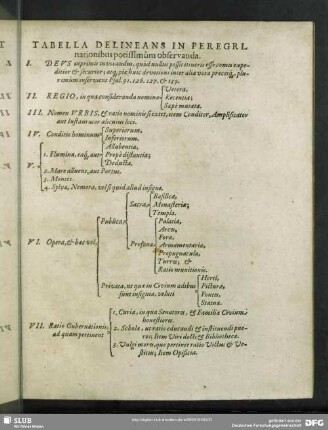 TABELLA DELINEANS IN PEREGRI-
nationibus potissimum observanda.
I. DEVS inprimis invocandus, quod nullus possit itineris esse comes expe-
ditior & securior; atq, pie huic devotioni inter alia vota precesq, plu-
rimum inserviunt Psal. 91. 126. 127. & 139.
II. REGIO, in qua consideranda nomina
Vetera,
Recentia;
Sæpè mutata.
III. Nomen VRBIS, & ratio nominis si extet, item Conditor, Amplificator
aut Instaurator alicuius loci.
IV. Conditio hominum
Superiorum,
Inferiorum.
V.
1. Flumina, eaq, aut
Alluentia,
Propè distantia;
Deducta.
2. Mare alluens, aut Portus.
3. Montes.
4. Sylvæ, Nemora, vel si quid aliud insigne.
VI. Opera, & hæc vel,
Publica
Sacra
Basilicæ,
Monasteria;
Templa.
Profana
Palatia,
Arces,
Fora,
Armamentaria,
Propugnacula,
Turres; &
Ratio munitionis.
Privata, ut quæ in Civium ædibus
sunt insignia, veluti
Horti,
Picturæ,
Fontes,
Statuæ.
VII. Ratio Gubernationis,
ad quam pertinent
1. Curia, in qua Senatores, & Familiæ Civium
honestiores.
2. Scholæ, ut ratio educandi & instituendi pue-
ros; Item Viri docti & Bibliothecæ.
3. Vulgi mores, quo pertinet ratio Victus & Ve-
stitus; Item Opificia.
SLUB
Wir führen Wissen.
gefördert von der
Deutschen Forschungsgemeinschaft
DFG